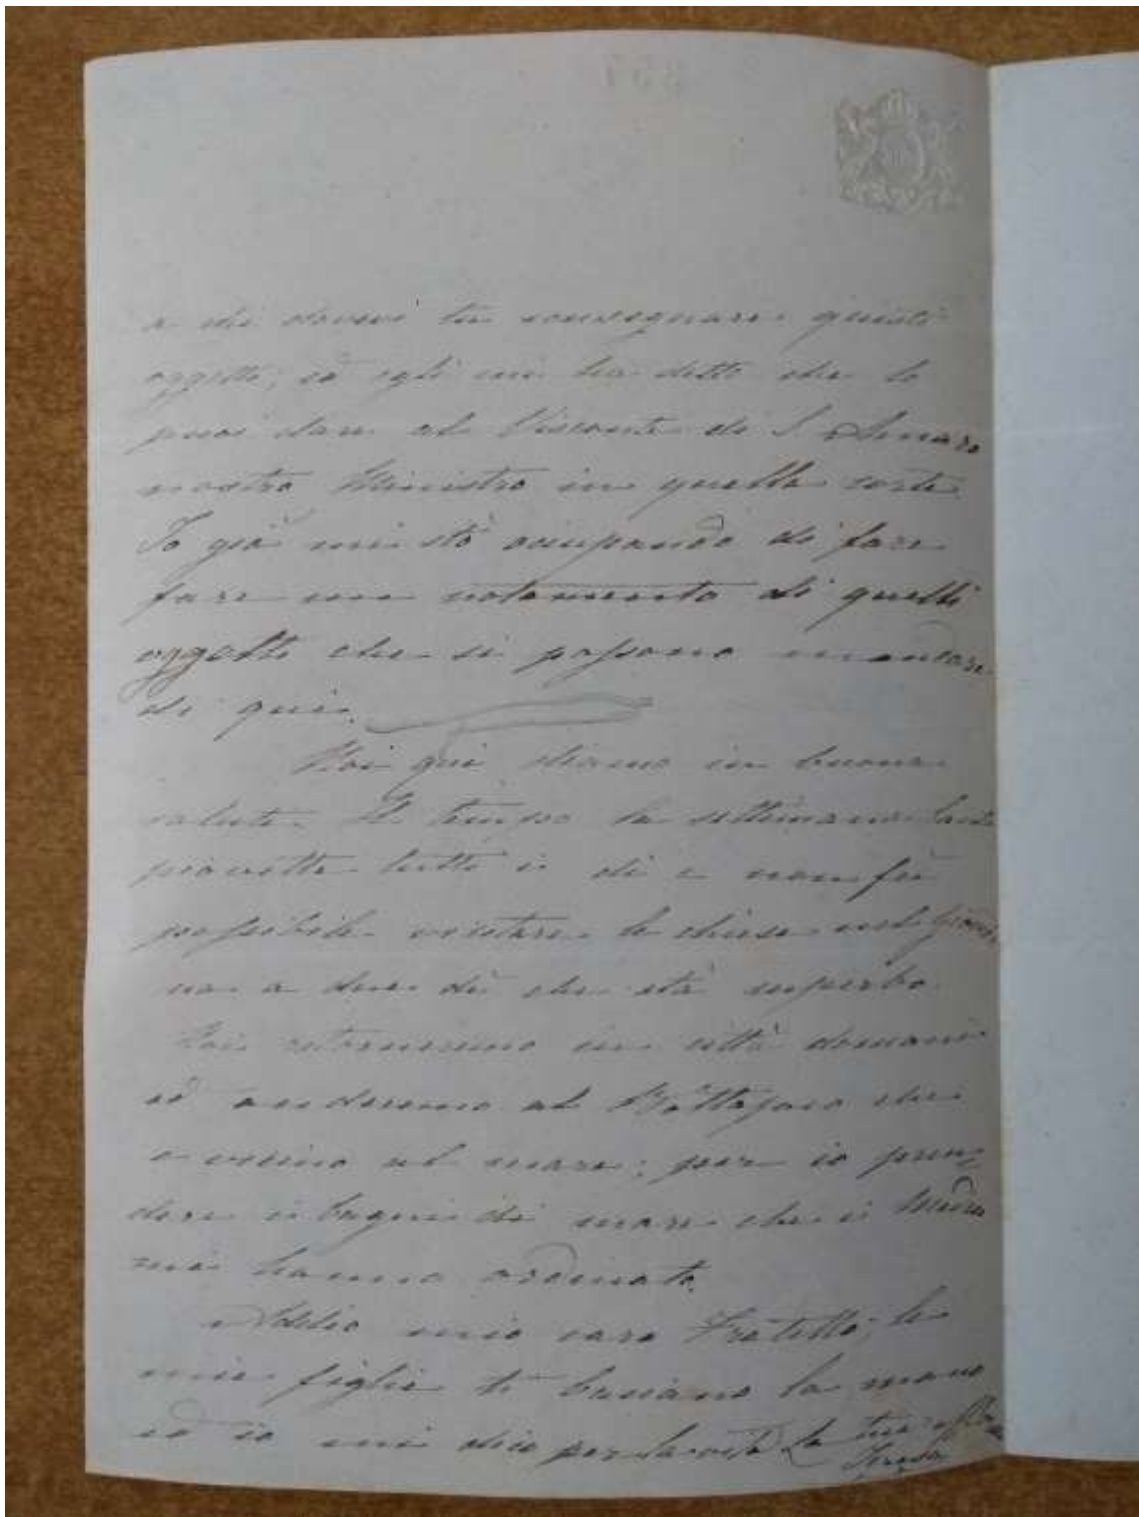 a chi dovevi tu consegnare questi
oggetti, ed egli mi ha detto che lo
puoi dare al Visconte di S. Amaro
nostro Ministro in quella corte
Io già mi stò occupando di fare
fare un notamento di quelli
oggetti che si possono mandare
di qui.
Noi qui stiamo in buona
salute. Il tempo la settimana Santa
piovette tutti i di e non fù
possibile visitare le chiese nel
a due di che stà superbo.
Noi ritorneremo in città domani
ed anderemo al Bottafoco che
è vicino al mare; per io pren=
dere i bagni di mare che i Medici
mi hanno ordinato.
Addio mio caro Fratello; le
mie figlie ti baciano la mano
ed io mi dico per la vita La tua
Teresa